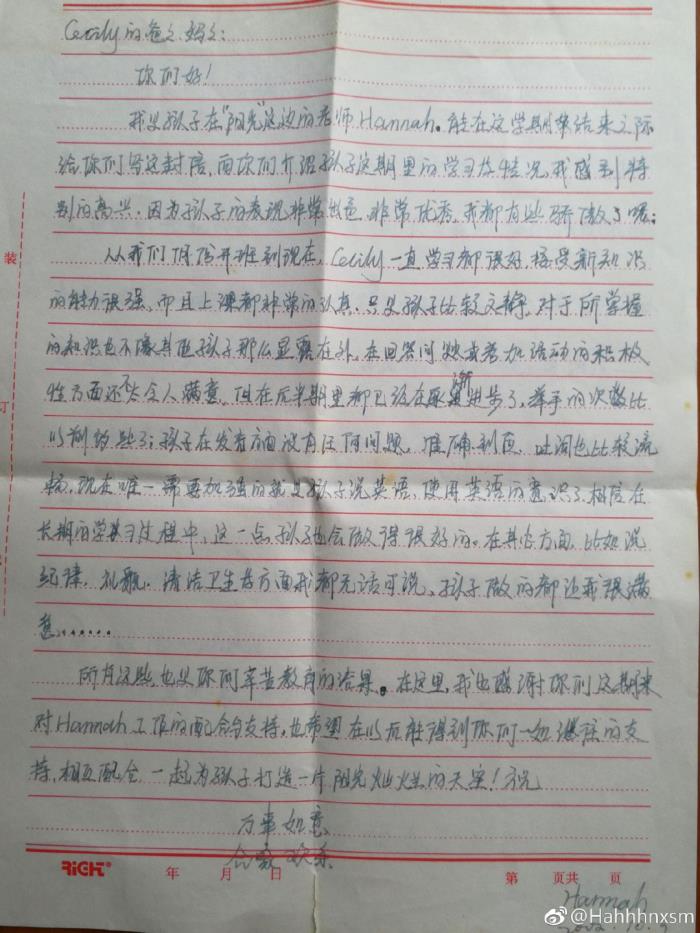 Cecily的爸爸妈妈：
你们好！
我是孩子在"阳光"这边的老师Hannah。能在这学期结束之际
给你们写这封信，向你们介绍孩子这期里的学习及情况，我感到特
别的高兴。因为孩子的表现非常出色，非常优秀，我都有些骄傲了喔；
装
从我们开班到现在，Cecily一直学习都很好，接受新知识
的能力很强，而且上课都非常的认真。只是孩子比较文静，对于所掌握
的知识也不像其他孩子那么显露在外，在回答问题或者参加活动的积极
性方面还不令人满意。但在后半期里都已经在逐渐进步了，举手的次数比
订
以前多些了；孩子在发音方面没有任何问题，准确到位，吐词也比较流
畅，现在唯一需要加强的就是孩子说英语，使用英语的意识了，相信在
长期的学习过程中，这一点孩子也会做得很好的。在其它方面，比如说
纪律，礼貌，清洁卫生等方面我都无话可说，孩子做的都让我很满
意……
所有这些，也是你们辛苦教育的结果。在这里，我也感谢你们这期来
对Hannah工作的配合与支持，也希望在以后能得到你们一如继往的支
持，相互配合，一起为孩子打造一片阳光灿烂的天空！祝
万事如意
合家欢乐
RIGHT® 年 月 日 第 页共 页
Hannah
@Hahhhnxsm